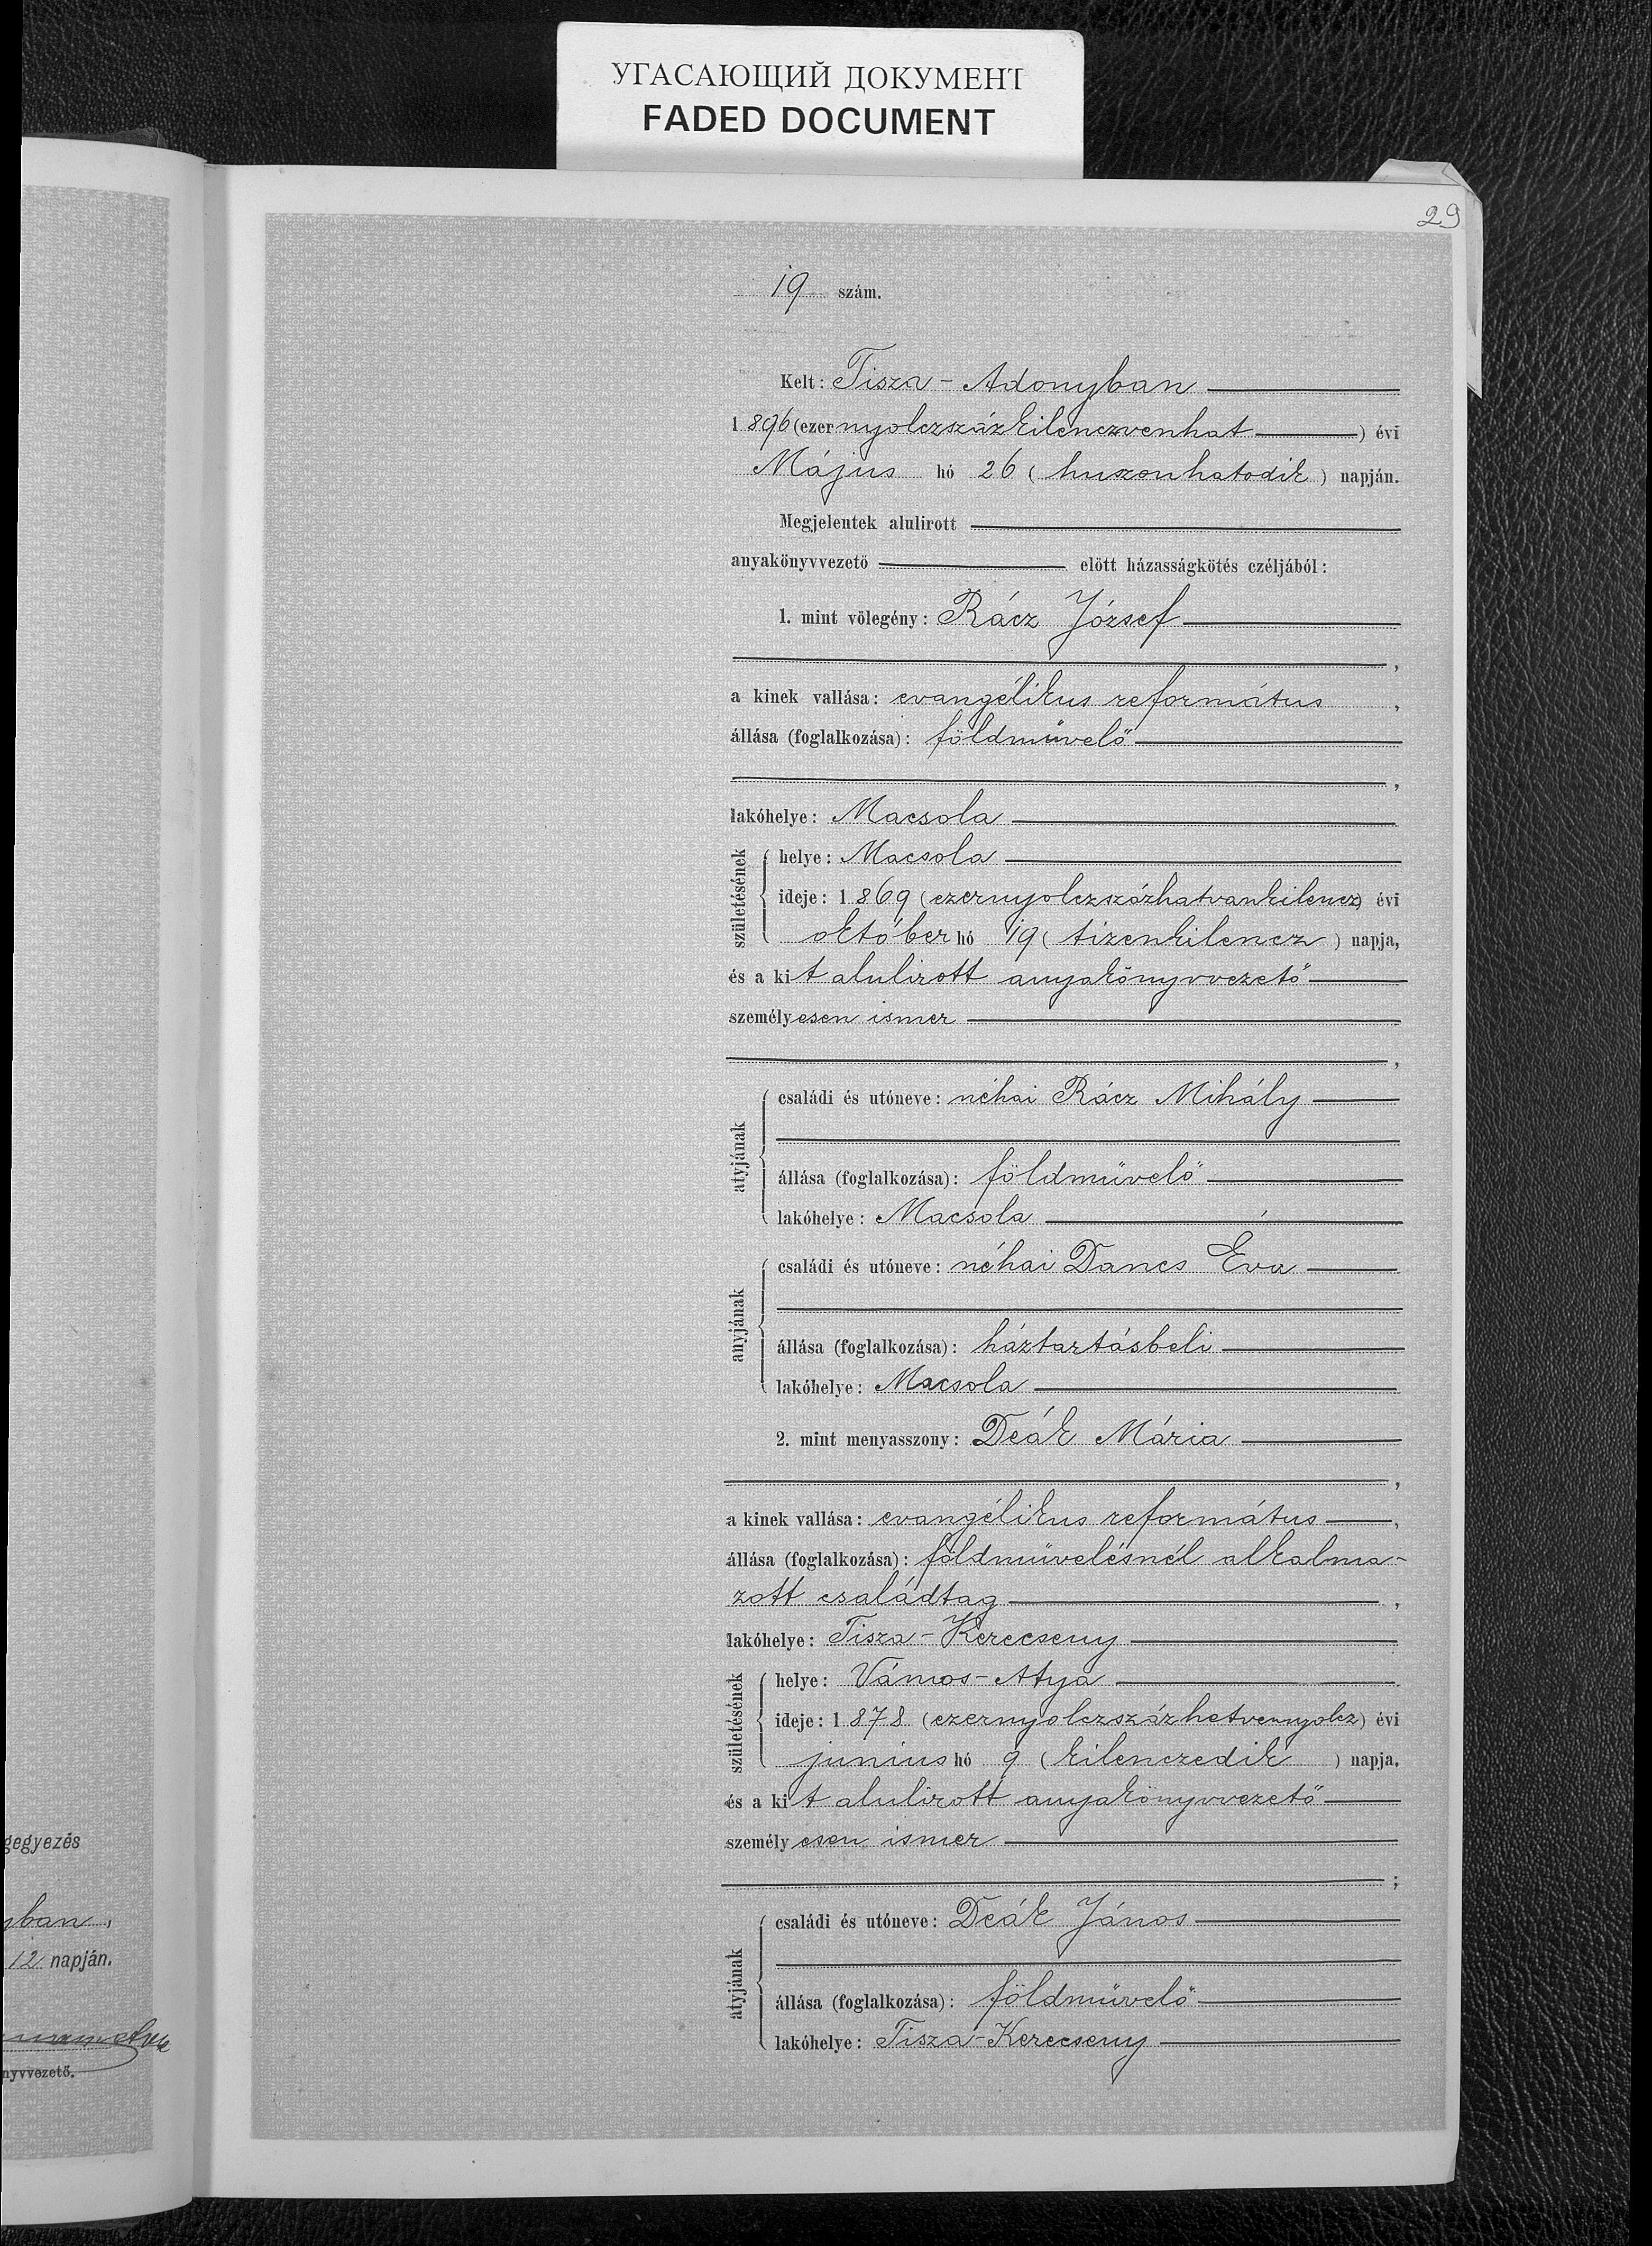 УГАСАЮЩИЙ ДОКУМЕНТ
FADED DOCUMENT
29
19 szám.
Kelt: Tisza-Adonyban
1896 (ezernyolczszázkilenczvenhat) évi
Május hó 26 (huszonhatodik) napján.
Megjelentek alulirott
anyakönyvvezető előtt házasságkötés czéljából:
1. mint völegény: Rácz József
,
a kinek vallása: evangélikus református,
állása (foglalkozása): földmüvelő
,
lakóhelye: Macsola
születésének
helye: Macsola
ideje: 1869 (ezernyolczszázhatvankilencz) évi
október hó 19 (tizenkilencz) napja,
és a kit alulirott anyakönyvvezető
személyesen ismer
,
atyjának
családi és utóneve: néhai Rácz Mihály
állása (foglalkozása): földmüvelő
lakóhelye: Macsola
anyjának
családi és utóneve: néhai Dancs Éva
állása (foglalkozása): háztartásbeli
lakóhelye: Macsola
2. mint menyasszony: Deák Mária
,
a kinek vallása: evangélikus református,
állása (foglalkozása): földmüvelésnél alkalma-
zott családtag,
lakóhelye: Tisza-Kerecseny
születésének
helye: Vámos-Atya
ideje: 1878 (ezernyolczszázhetvennyolcz) évi
junius hó 9 (kilenczedik) napja,
és a kit alulirott anyakönyvvezető
személyesen ismer
;
atyjának
családi és utóneve: Deák János
állása (foglalkozása): földmüvelő
lakóhelye: Tisza-Kerecseny
gegyezés
yban,
12 napján.
nyvvezető.